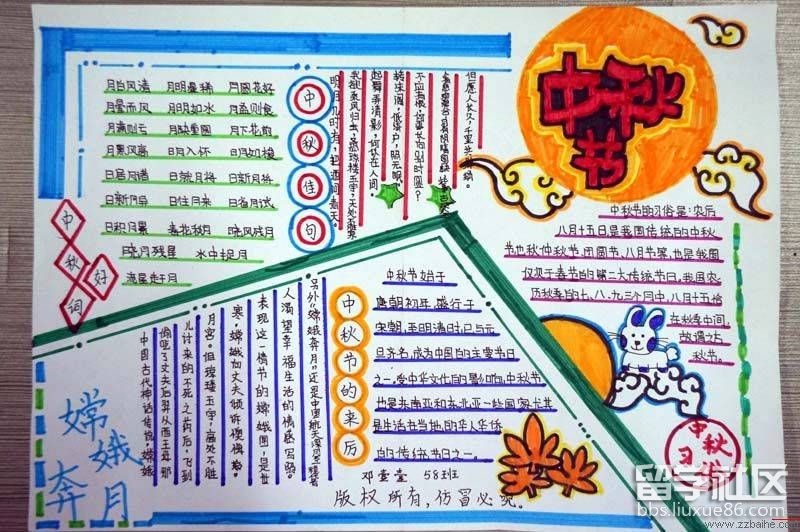 中秋节
中秋好词
月白风清 月明星稀 月圆花好
月晕而风 月明如水 月盈则食
月满则亏 月缺重圆 月下花前
月黑风高 明月入怀 日月如梭
日居月诸 日就月将 日新月将
日新月异 日往月来 日省月试
日积月累 春花秋月 晓风残月
晓月残星 水中捉月
流星赶月
中秋佳句
明月几时有,把酒问青天。
我欲乘风归去,
起舞弄清影,何似在人间。
转朱阁,低绮户,照无眠。
不应有恨,何事长向别时圆?
但愿人长久,千里共婵娟。
中秋节的习俗是:农历
八月十五日是我国传统的中秋
节也称仲秋节、团圆节、八月节等,也是我国
仅次于春节的第二大传统节日,我国农
历秋季的七、八、九三个月中,八月十五恰
在秋季中间
故谓之中
秋节。
中秋节的来历
中秋节始于
唐朝初年,盛行于
宋朝,至明清时已与元
旦齐名,成为中国的主要节日
之一,受中华文化的影响,中秋节
也是东南亚和东北亚一些国家尤其
是生活在当地的华人华侨
的传统节日之一。
嫦娥奔月
中国古代神话传说,嫦娥
偷吃了丈夫后羿从西王母那
儿讨来的不死之药后,飞到
月宫。但琼楼玉宇,高处不胜
寒,嫦娥向丈夫倾诉懊悔。
表现这一情节的嫦娥图,是世
人渴望幸福生活的情感写照。
另外“嫦娥奔月”还是中国
中秋习俗
邓莹莹 58班
版权所有,仿冒必究。
留学社区
bbs.liuxue86.com
www.zzbaihe.com